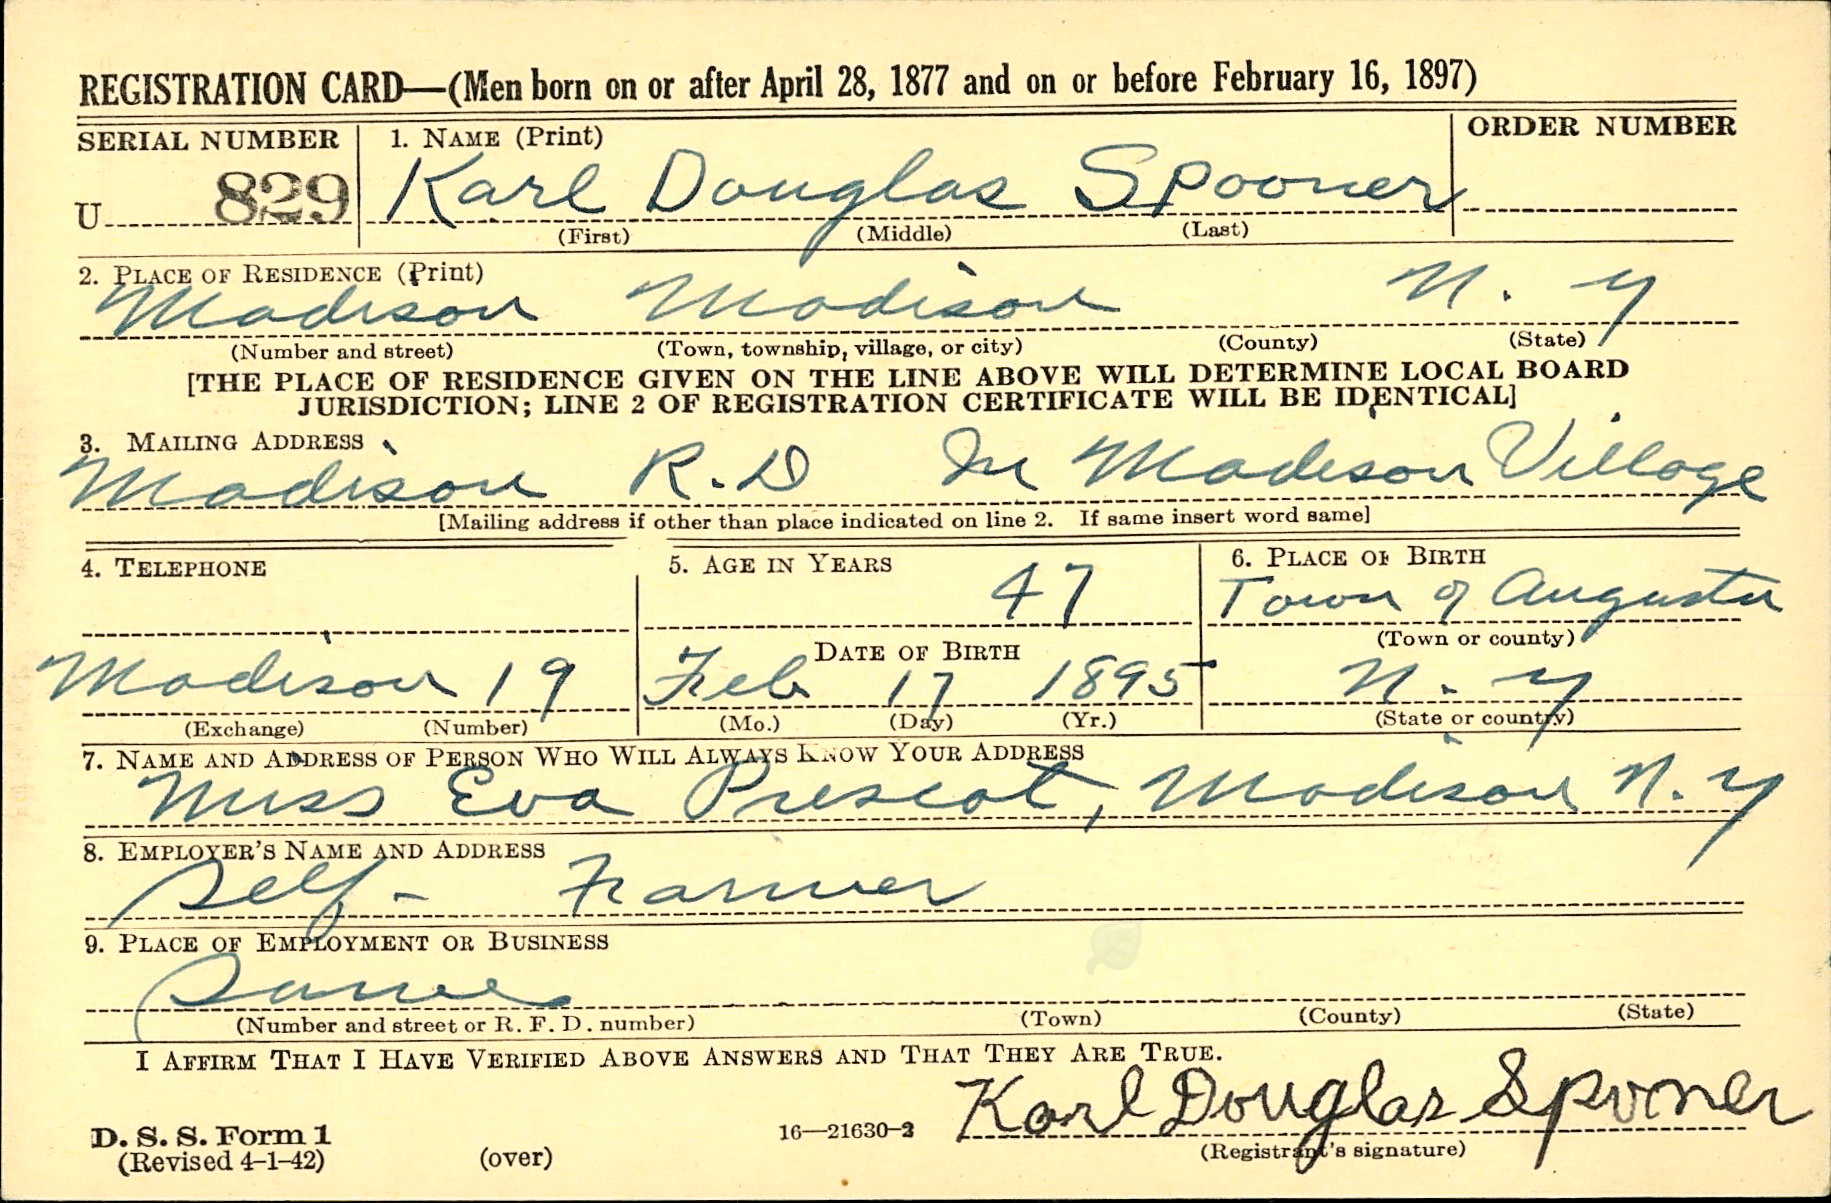 REGISTRATION CARD—(Men born on or after April 28, 1877 and on or before February 16, 1897)
SERIAL NUMBER 1. NAME (Print) ORDER NUMBER
U 829 Karl Douglas Spooner
(First) (Middle) (Last)
2. PLACE OF RESIDENCE (Print)
Madison Madison N. Y
(Number and street) (Town, township, village, or city) (County) (State)
[THE PLACE OF RESIDENCE GIVEN ON THE LINE ABOVE WILL DETERMINE LOCAL BOARD
JURISDICTION; LINE 2 OF REGISTRATION CERTIFICATE WILL BE IDENTICAL]
3. MAILING ADDRESS
Madison R.D In Madison Village
[Mailing address if other than place indicated on line 2. If same insert word same]
4. TELEPHONE 5. AGE IN YEARS 6. PLACE OF BIRTH
47 Town of Augusta
DATE OF BIRTH (Town or county)
Madison 19 Feb 17 1895 N. Y
(Exchange) (Number) (Mo.) (Day) (Yr.) (State or country)
7. NAME AND ADDRESS OF PERSON WHO WILL ALWAYS KNOW YOUR ADDRESS
Miss Eva Prescot, Madison N. Y
8. EMPLOYER'S NAME AND ADDRESS
Self - Farmer
9. PLACE OF EMPLOYMENT OR BUSINESS
Same
(Number and street or R. F. D. number) (Town) (County) (State)
I AFFIRM THAT I HAVE VERIFIED ABOVE ANSWERS AND THAT THEY ARE TRUE.
Karl Douglas Spooner
D. S. S. Form 1 16—21630-2
(Registrant's signature)
(Revised 4-1-42) (over)